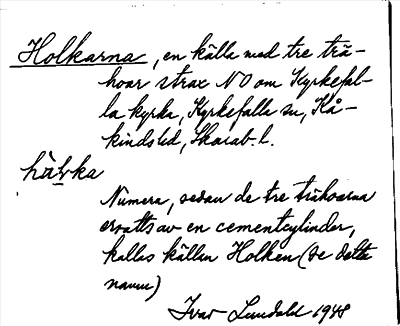 Holkarna, en källa med tre trä-
hoar strax NO om Kyrkefal-
la kyrka, Kyrkefalla sn, Kå-
kindshd, Skarab. l.
hå̀l̬ka
Numera, sedan de tre trähoarna
ersatts av en cementcylinder,
kallas källan Holken (se detta
namn)
Ivar Lundahl 1948